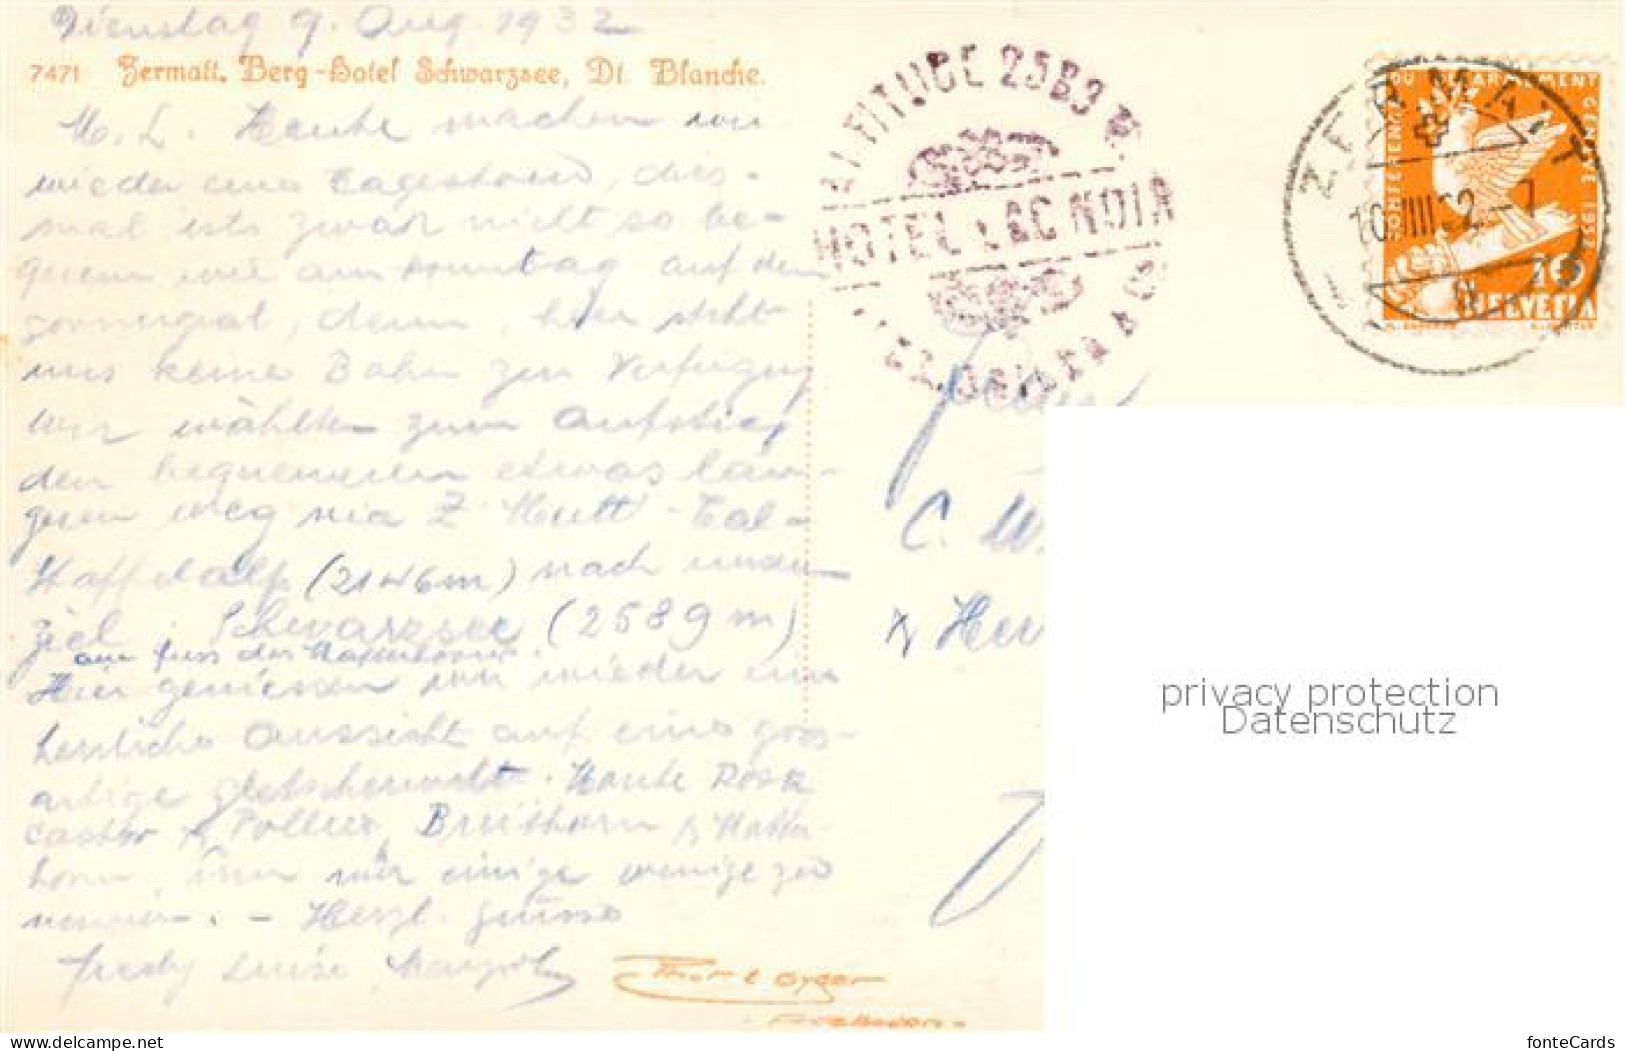 Dienstag 9. Aug. 1932
7471 Zermatt. Berg-Hotel Schwarzsee, Dt. Blanche.
M. L. Heute machen wir
wieder eine Tagestour, dies-
mal ists zwar nicht so be-
quem wie am Sonntag auf den
Gornergrat, denn hier steht
uns keine Bahn zur Verfügung
wir wählten zum Aufstieg
den bequemeren etwas län-
geren Weg via Z'Mutt-Tal-
Staffelalp (2146m) nach unserem
ziel Schwarzsee (2589m)
am Fuss des Matterhorns.
Hier geniessen wir wieder eine
herrliche Aussicht auf eine gros-
artige Gletscherwelt. Monte Rosa
Castor & Pollux, Breithorn & Matter-
horn, um nur einige wenige zu
nennen. - Herzl. Grüsse
Fredy Luise
ALTITUDE 2583 M.
HOTEL LAC NOIR
ZERMATT
10.VIII.32.-7
CONFERENCE DU DESARMEMENT GENEVE 1932
10
HELVETIA
C. W.
& Her
privacy protection
Datenschutz
www.delcampe.net
fonteCards